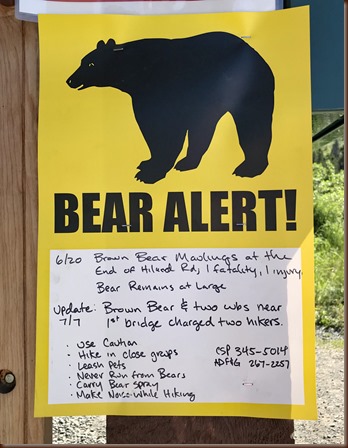 BEAR ALERT!
6/20 Brown Bear Maulings at the
End of Hiland Rd, 1 fatality, 1 injury.
Bear Remains at Large
Update: Brown Bear & two cubs near
7/7 1st bridge charged two hikers.
• Use Caution
• Hike in close groups
• Leash Pets
• Never Run from Bears
• Carry Bear spray
• Make Noise while Hiking
CSP 345-5014
ADF&G 267-2257